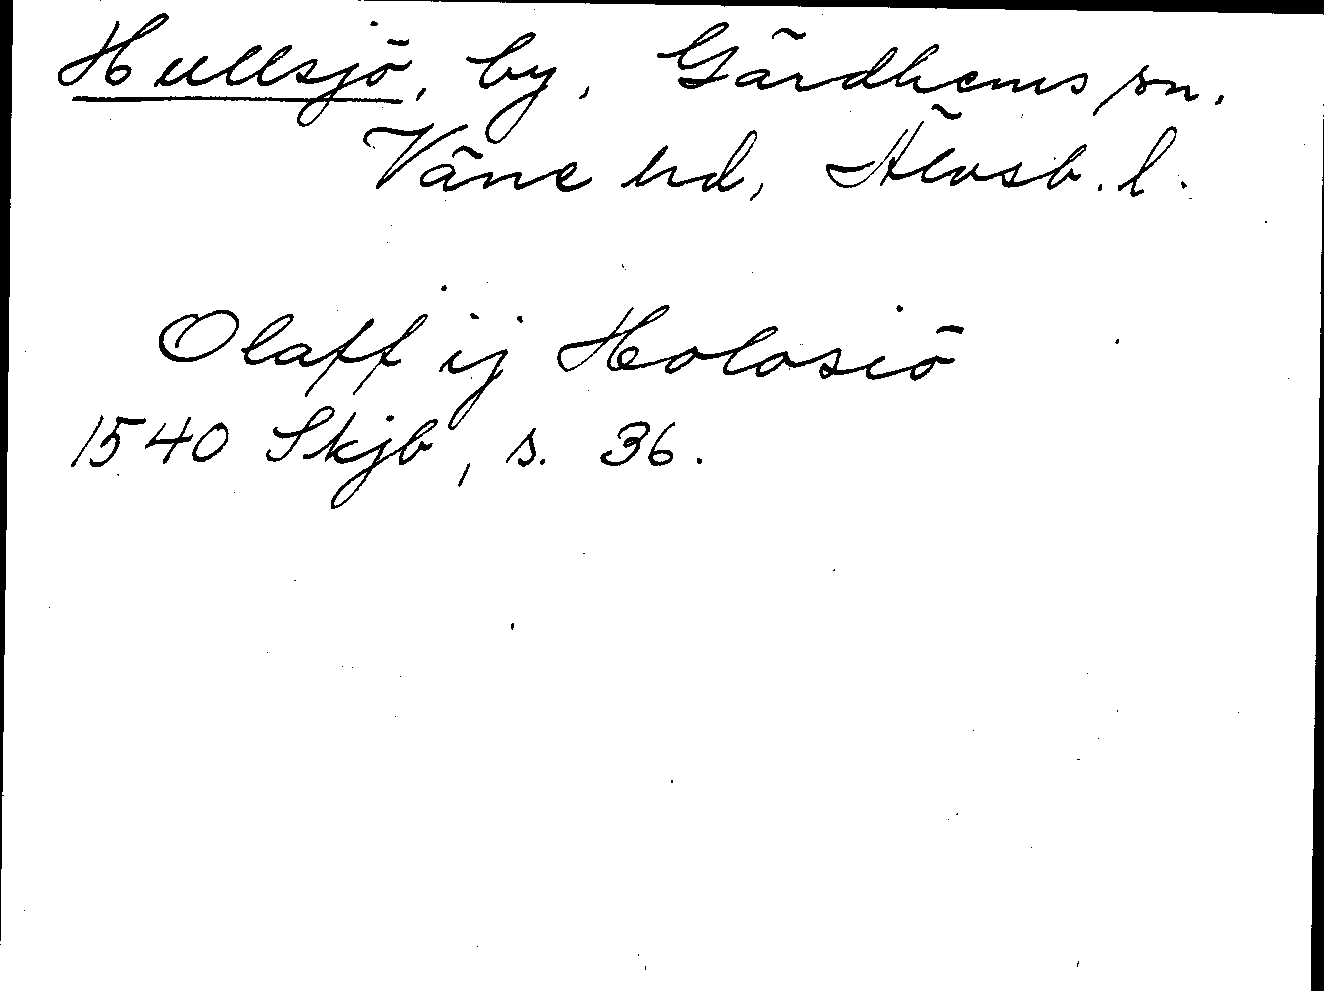 Hullsjö, by, Gärdhems sn.
Väne hd, Älvsb. l.
Olaff ij Holosiö
1540 Skjb, s. 36.